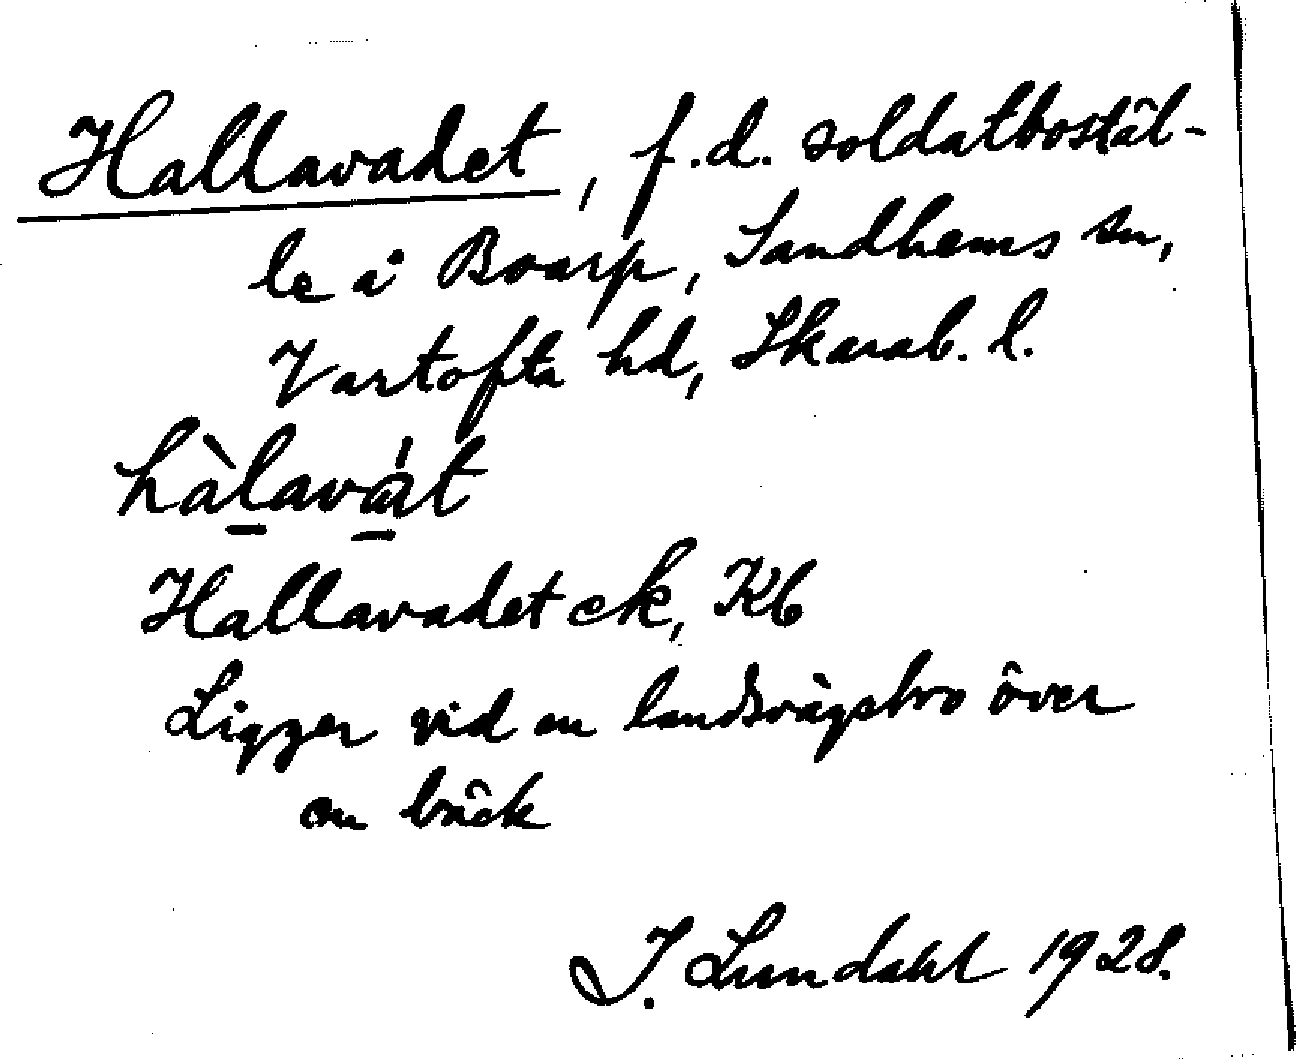 Hallavadet, f.d. soldatbostäl-
le å Boarp, Sandhems sn,
Vartofta hd, Skarab. l.
hàlavát
Hallavadet ek, Kb
Ligger vid en landsvägsbro över
en bäck
I. Lundahl 1928.